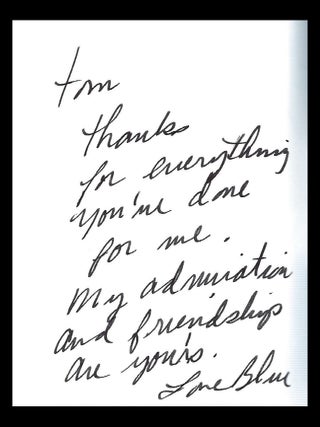 Tom
Thanks
for everything
you've done
for me.
My admiration
and friendship
are yours.
Love Blue